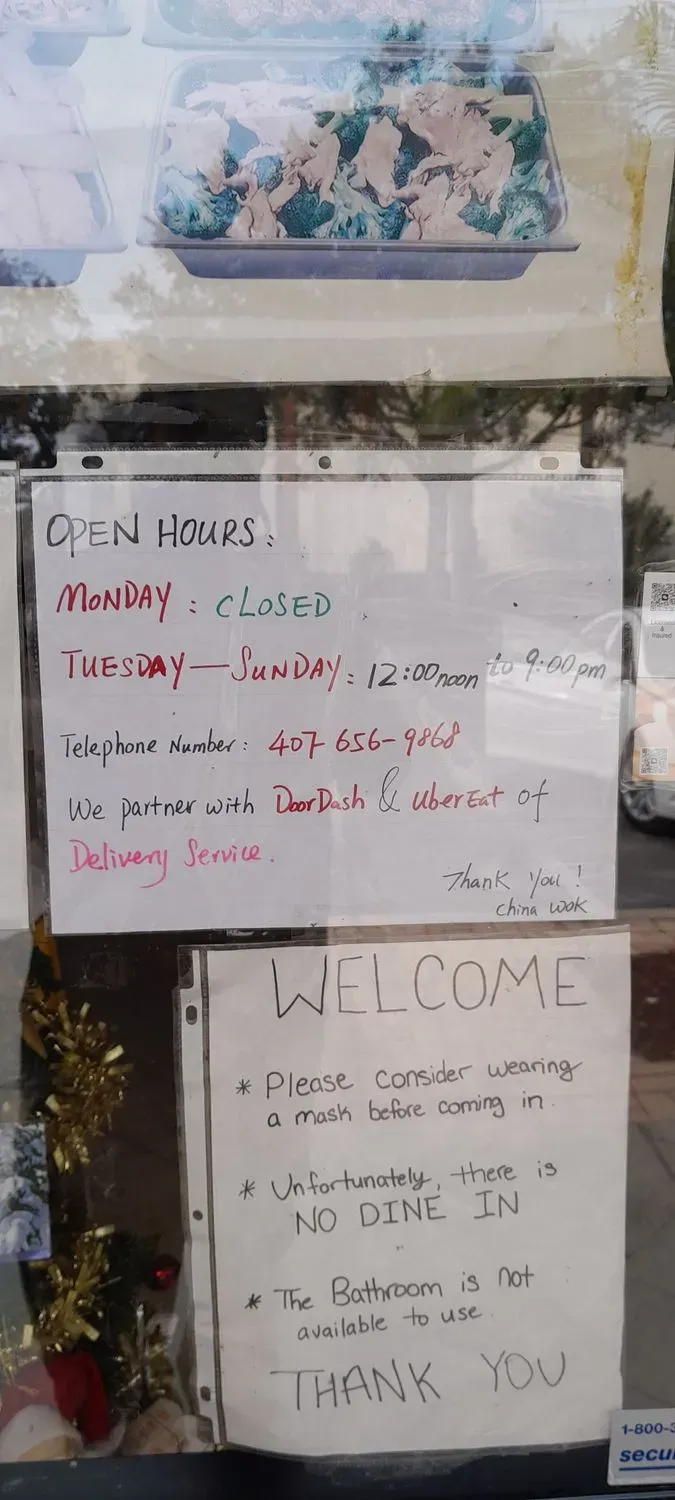 OPEN HOURS:
MONDAY: CLOSED
TUESDAY—SUNDAY: 12:00noon to 9:00pm
Telephone Number: 407-656-9868
We partner with DoorDash & UberEat of
Delivery Service.
Thank You!
China Wok
WELCOME
* Please consider wearing
a mask before coming in.
* Unfortunately, there is
NO DINE IN
* The Bathroom is not
available to use.
THANK YOU
Licensed
&
Insured
1-800-3
secu